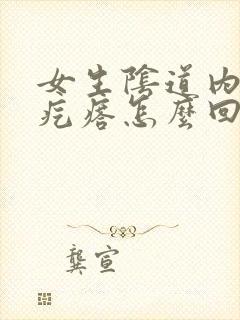 女生陰道內
疙瘩怎麼回
龔宣